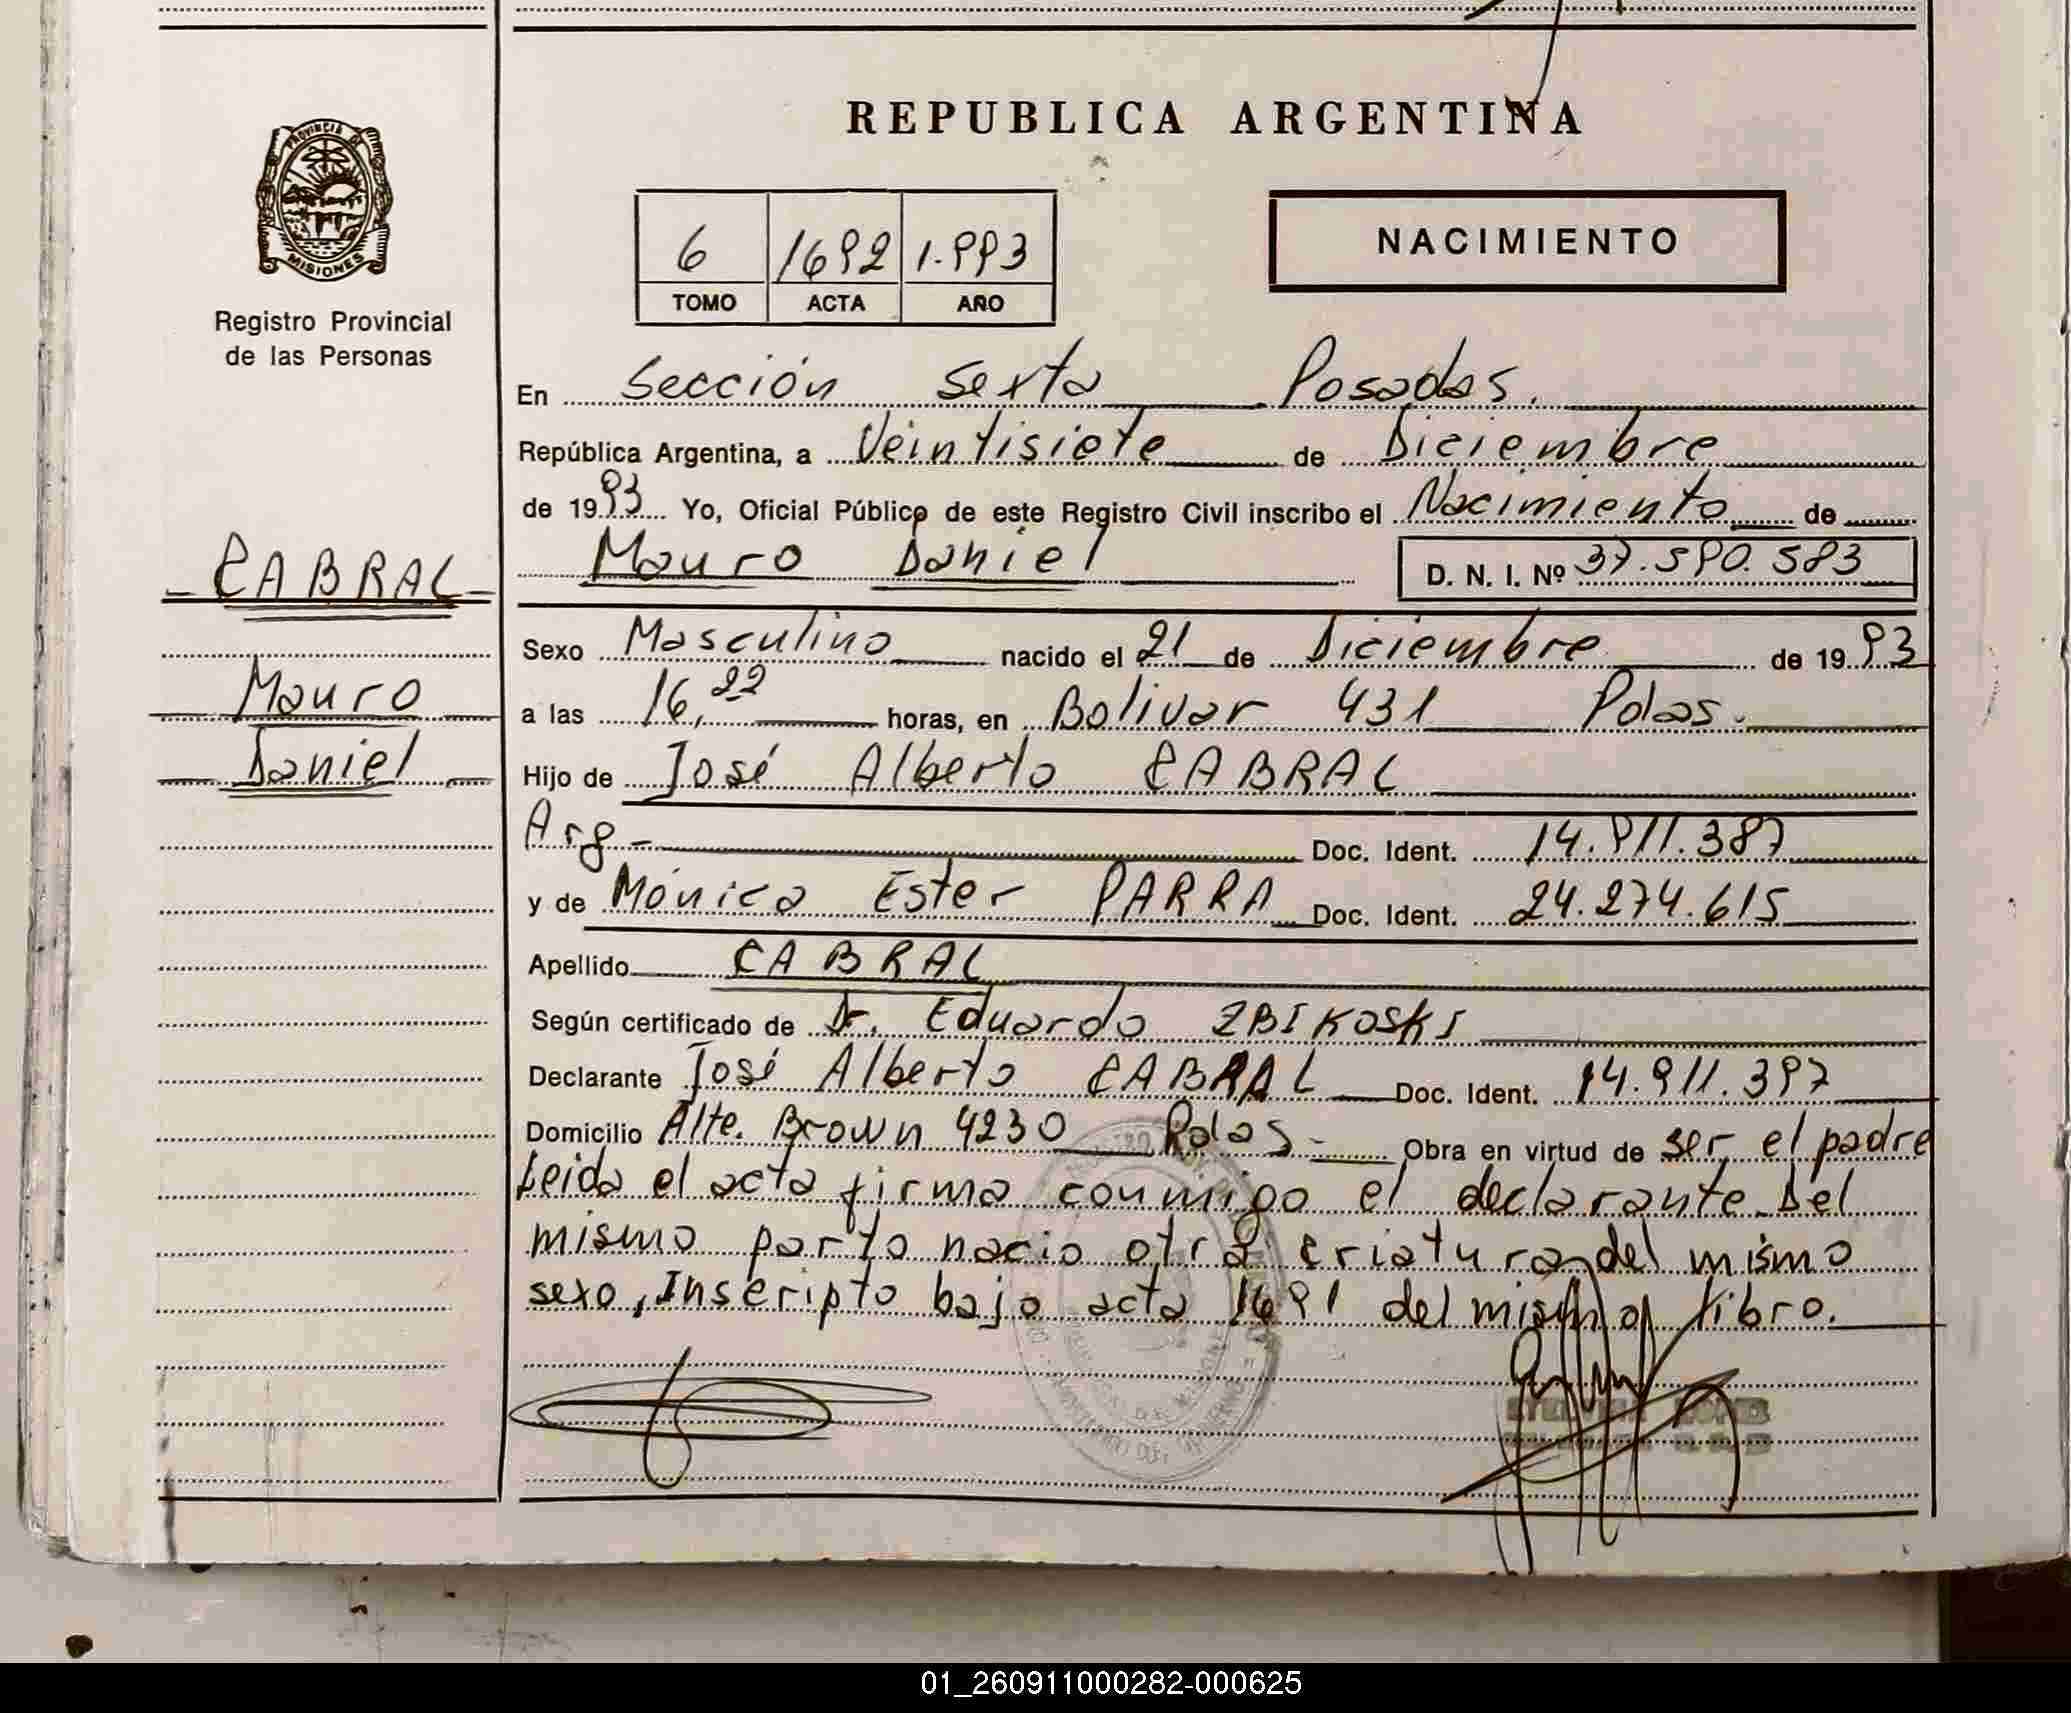 REPUBLICA ARGENTINA
PROVINCIA DE
MISIONES
Registro Provincial
de las Personas
6 1692 1.993
TOMO ACTA AÑO
NACIMIENTO
En Sección Sexta Posadas.
República Argentina, a Veintisiete de Diciembre
de 1993 Yo, Oficial Público de este Registro Civil inscribo el Nacimiento de
CABRAL
Mauro Daniel D. N. I. Nº 37.590.583
Sexo Masculino nacido el 21 de Diciembre de 1993
Mauro
a las 16,22 horas, en Bolivar 431 Pdas.
Daniel
Hijo de José Alberto CABRAL
Arg- Doc. Ident. 14.911.387
y de Mónica Ester PARRA Doc. Ident. 24.274.615
Apellido CABRAL
Según certificado de Dr. Eduardo ZBIKOSKI
Declarante José Alberto CABRAL Doc. Ident. 14.911.397
Domicilio Alte. Brown 4230 Pdas.- Obra en virtud de ser el padre
Leida el acta firma conmigo el declarante. Del
mismo parto nacio otra criatura del mismo
sexo, Inscripto bajo acta 1691 del mismo libro.
01_260911000282-000625